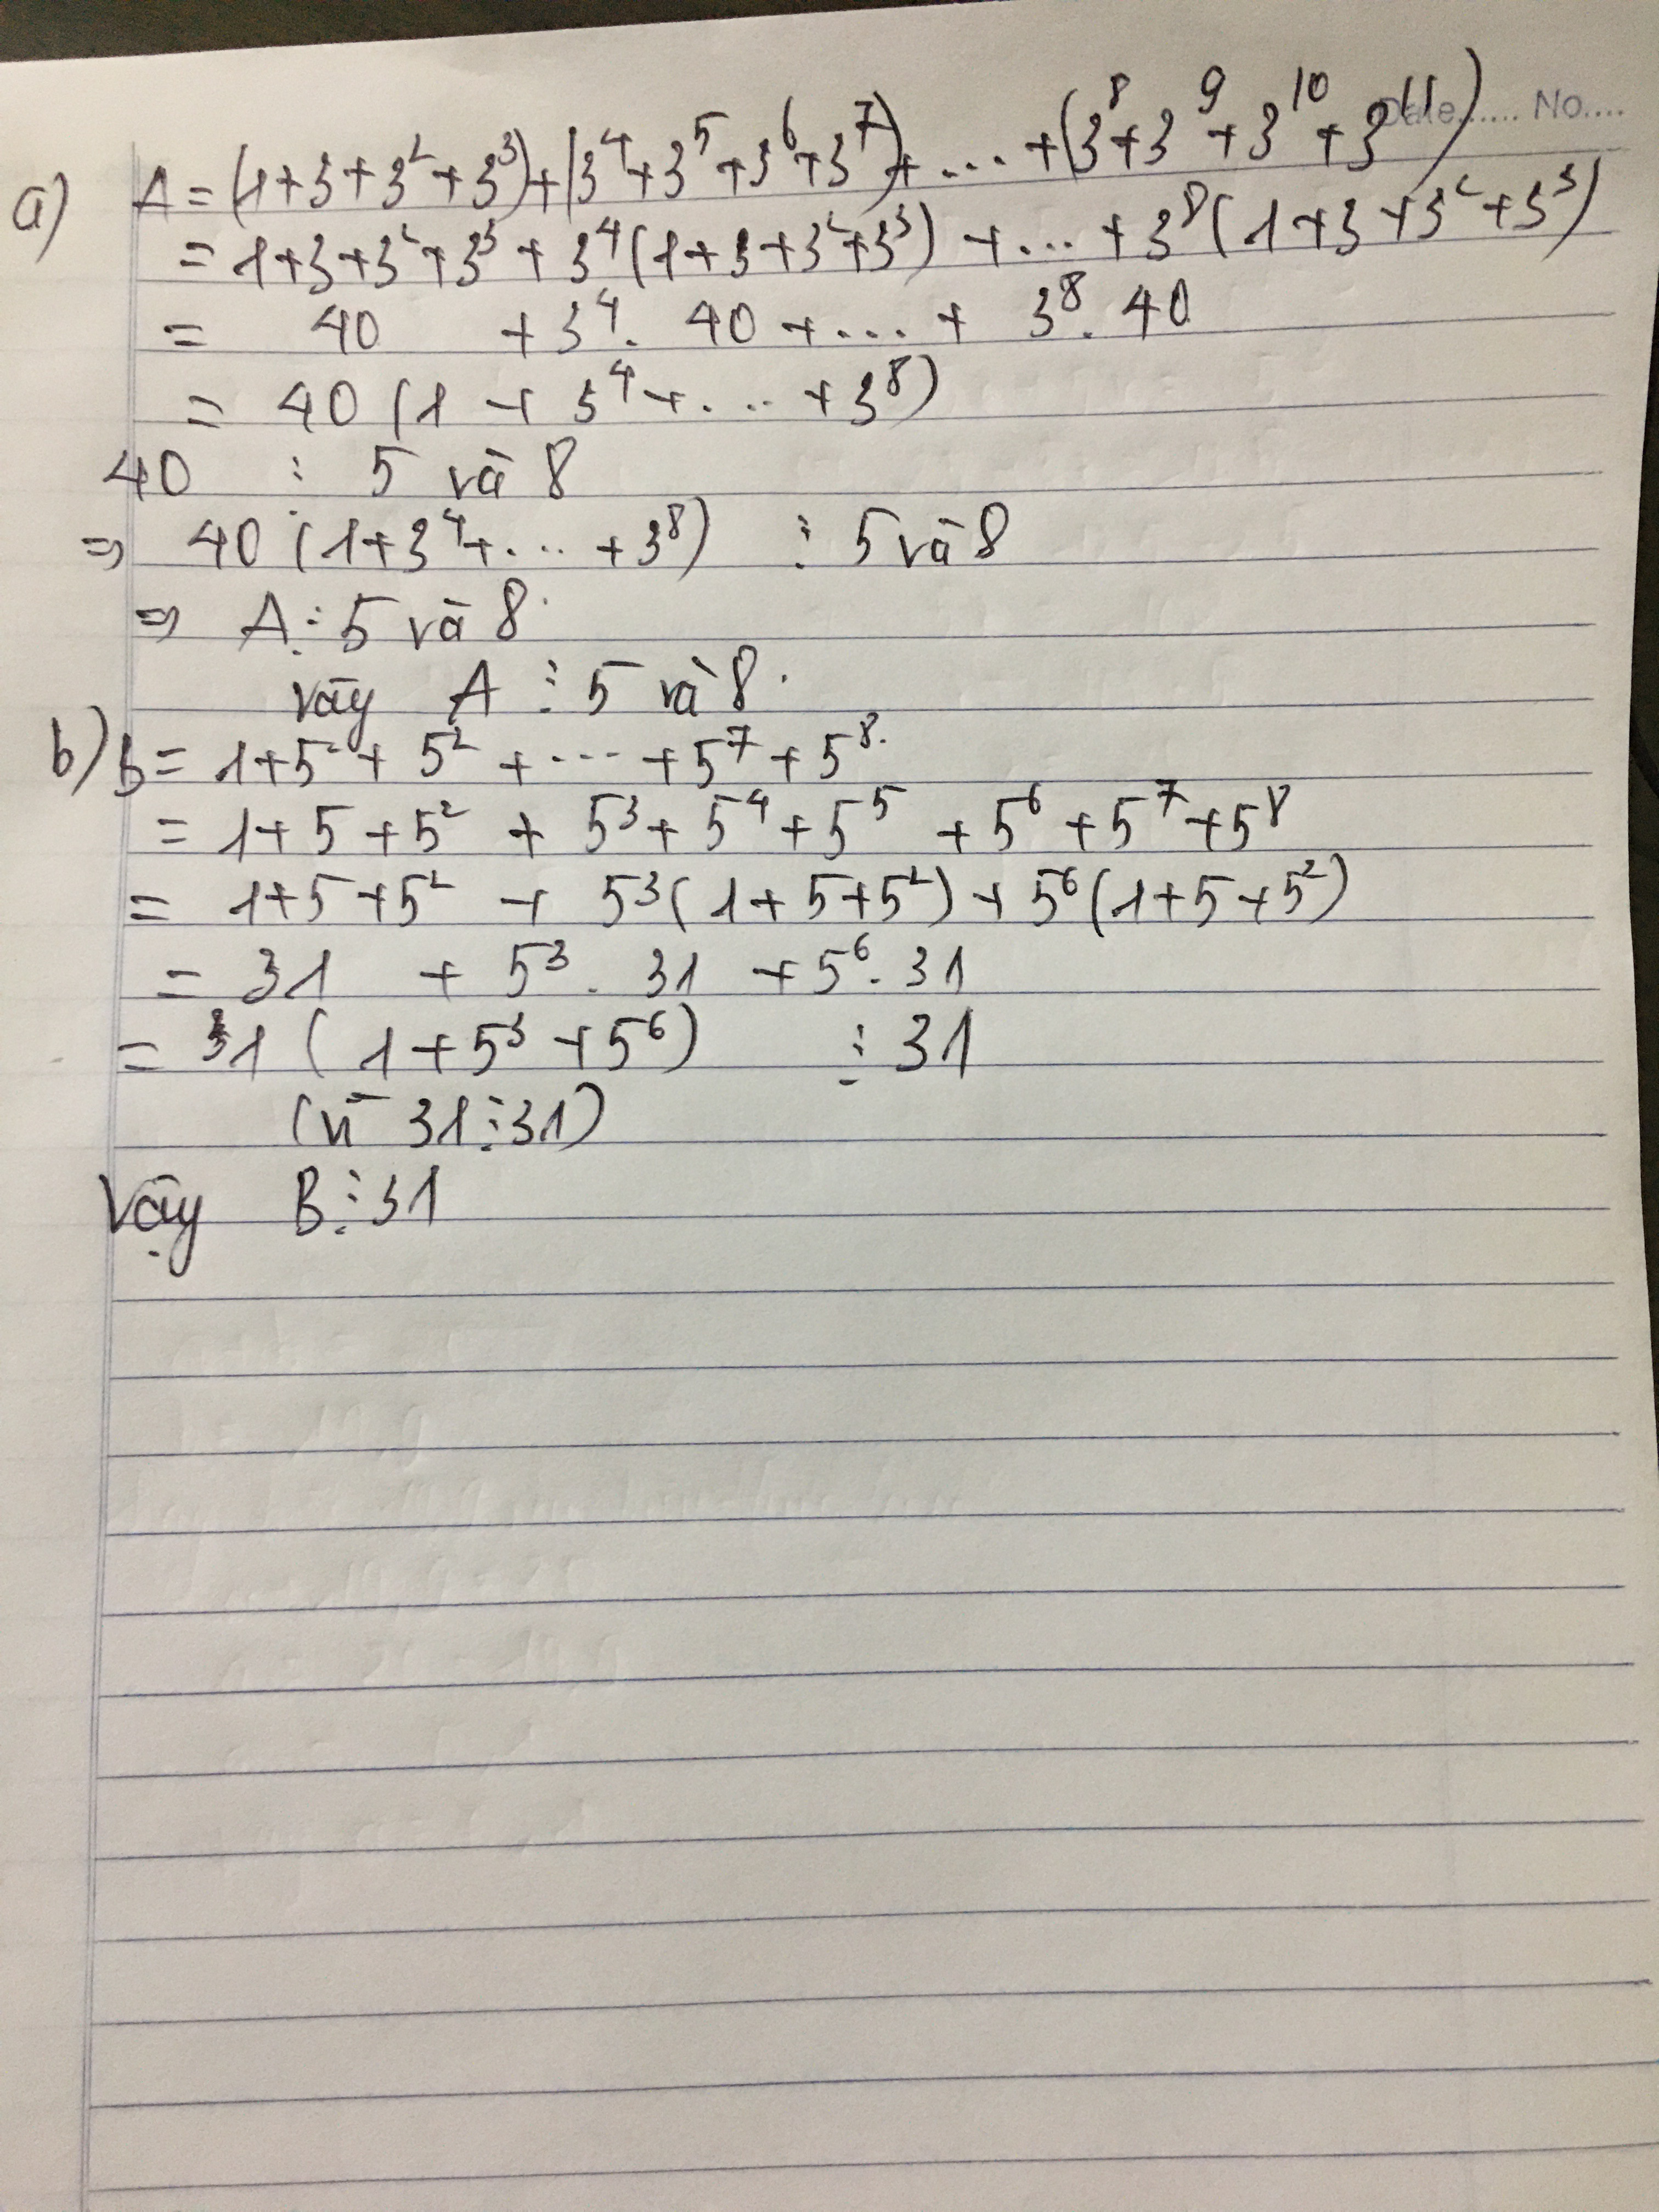 Date...... No....
a) A = (1+3+3²+3³)+(3⁴+3⁵+3⁶+3⁷)+ ... +(3⁸+3⁹+3¹⁰+3¹¹)
= 1+3+3²+3³ + 3⁴(1+3+3²+3³) + ... + 3⁸(1+3+3²+3³)
= 40 + 3⁴. 40 + ... + 3⁸. 40
= 40 (1 + 3⁴ + ... + 3⁸)
40 ⋮ 5 và 8
⇒ 40 (1+3⁴+ ... +3⁸) ⋮ 5 và 8
⇒ A ⋮ 5 và 8.
vậy A ⋮ 5 và 8.
b) B = 1+5+ 5² + ... + 5⁷ + 5⁸.
= 1+ 5 +5² + 5³ + 5⁴ + 5⁵ + 5⁶ + 5⁷ + 5⁸
= 1+5 +5² + 5³(1+5+5²) + 5⁶(1+5+5²)
= 31 + 5³. 31 + 5⁶. 31
= 31 (1+5³ +5⁶) ⋮ 31
(vì 31 ⋮ 31)
Vậy B ⋮ 31